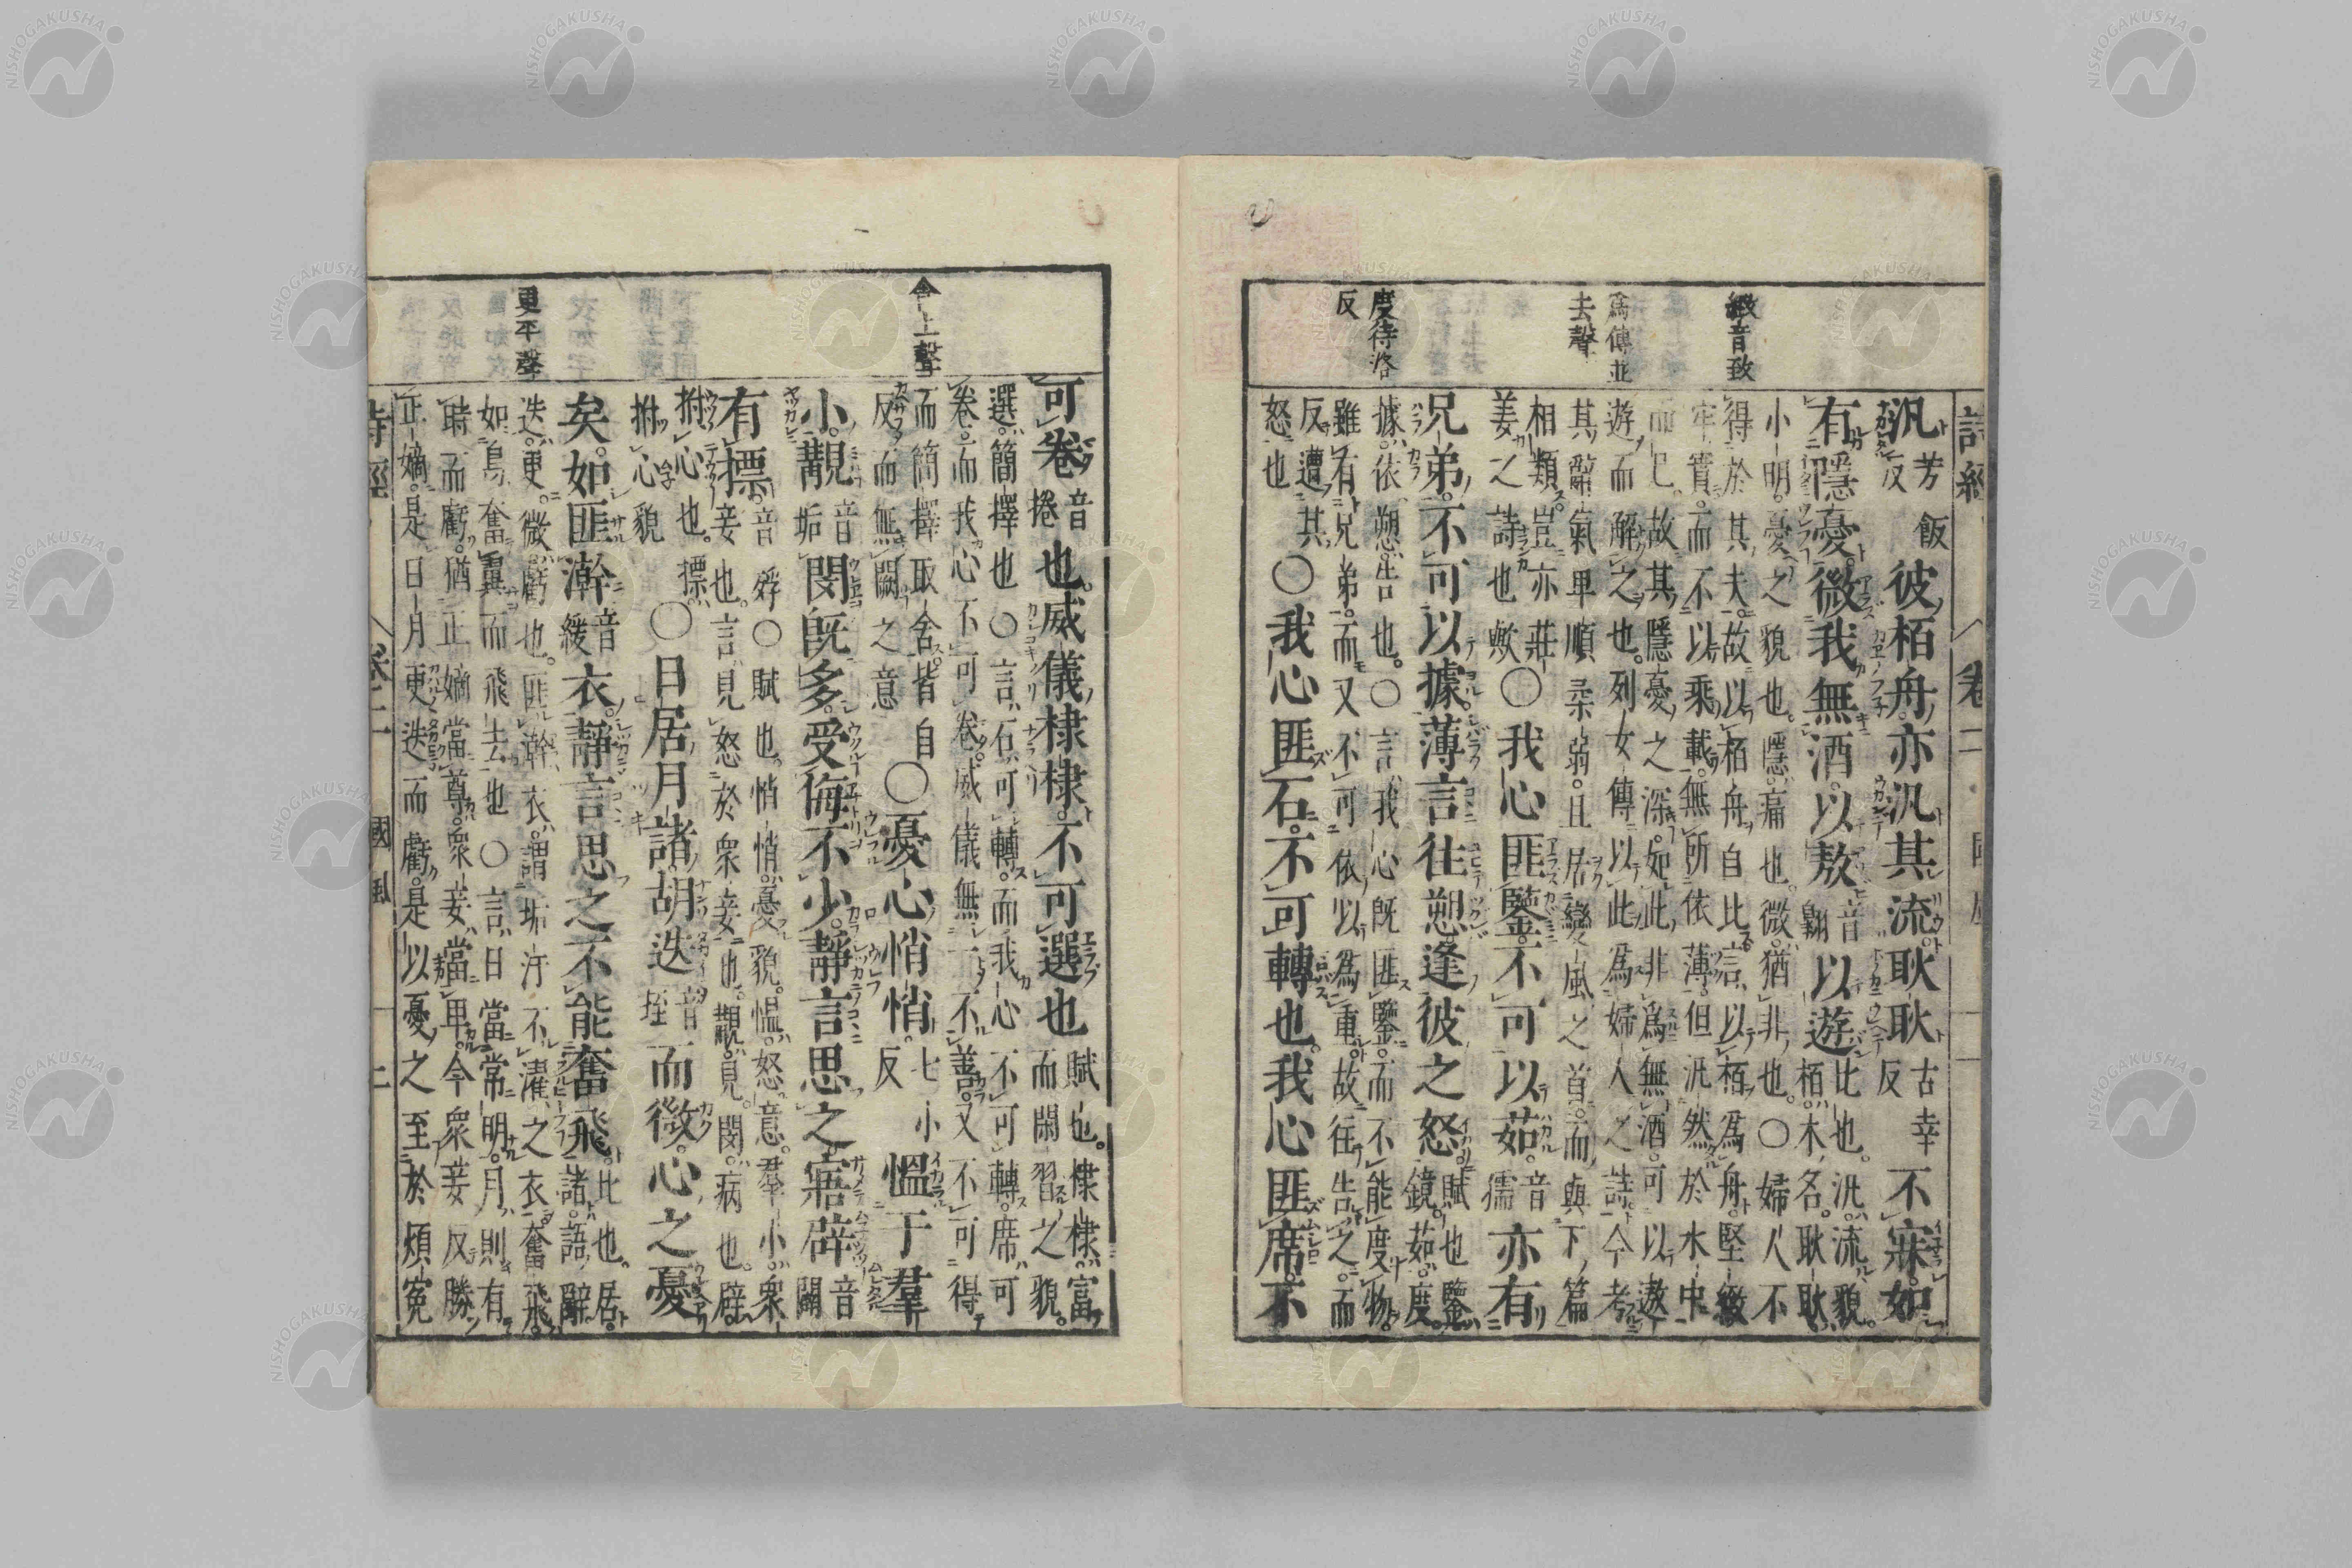 詩經 卷二
緻音致
為傳並
去聲
度待洛
反
汎芳飯反彼栢舟亦汎其流耿耿古幸反不寐如
有隱憂微我無酒以敖音翺以遊比也汎流貌栢木名耿耿
小明憂之貌也隱痛也微猶非也○婦人不
得於其夫故以栢舟自比言以栢為舟堅緻
牢實而不以乘載無所依薄但汎然於水中
而已故其隱憂之深如此非為無酒可以遨
遊而解之也列女傳以此為婦人之詩今考
其辭氣卑順柔弱且居變風之首而與下篇
相類豈亦莊姜之詩也歟○我心匪鑒不可以茹音孺亦有
兄弟不可以據薄言往愬逢彼之怒賦也鑒鏡茹度
據依愬告也○言我心既匪鑒而不能度物
雖有兄弟而又不可依以為重故往告之而
反遭其怒也○我心匪石不可轉也我心匪席不
舍上聲
更平聲
可卷音捲也威儀棣棣不可選也賦也棣棣富而閑習之貌
選簡擇也○言石可轉而我心不可轉席可
卷而我心不可卷威儀無一不善又不可得
而簡擇取舍皆自反而無闕之意○憂心悄悄七小反慍于羣
小覯音垢閔既多受侮不少靜言思之寤辟音闢
有摽音殍○賦也悄悄憂貌慍怒意羣小衆妾也言見怒於衆妾也覯見閔病也辟
拊心也摽拊心貌○日居月諸胡迭音垤而微心之憂
矣如匪澣音緩衣靜言思之不能奮飛比也居諸語辭
迭更微虧也匪澣衣謂垢汙不濯之衣奮飛
如鳥奮翼而飛去也○言日當常明月則有
時而虧猶正嫡當尊衆妾當卑今衆妾反勝
正嫡是日月更迭而虧是以憂之至於煩寃
詩經 卷二 國風 二
NISHOGAKUSHA